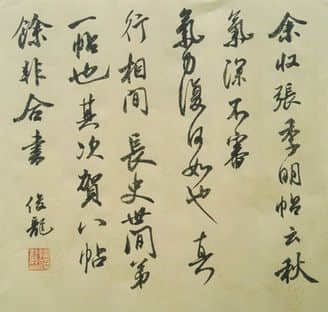 余收張季明帖云秋
氣深不審
氣力復何如也真
行相間長史世間第
一帖也其次賀八帖
餘非合書
俊龍